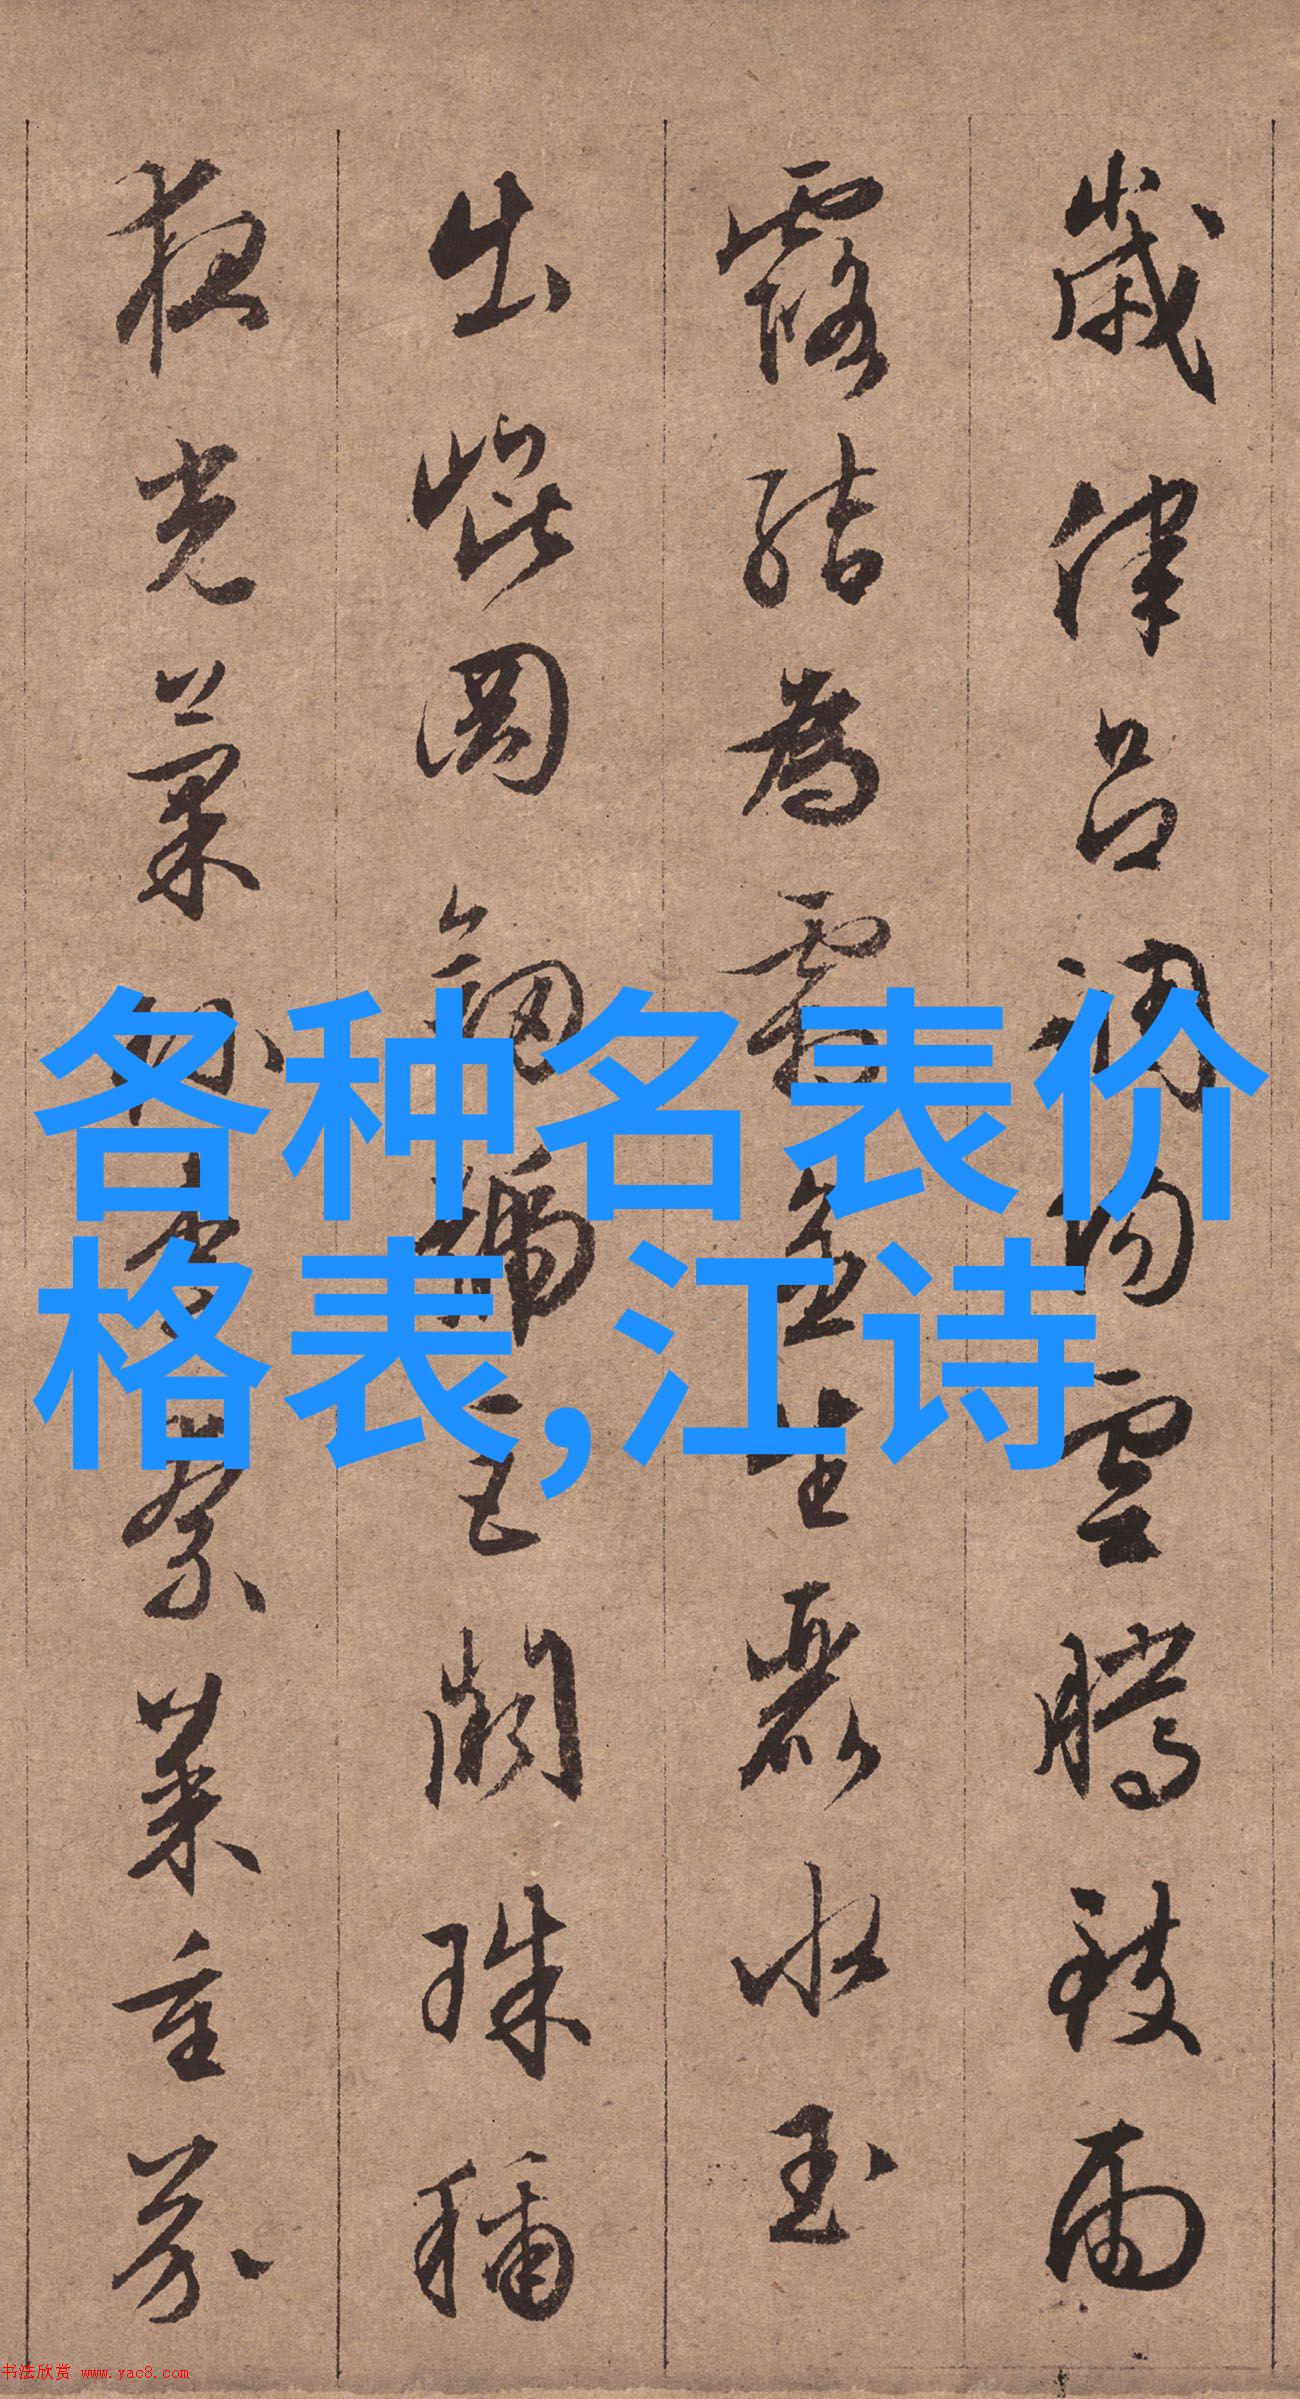 歲律吕調陽雲騰致雨
露結為霜金生麗水玉
出崐岡劔號巨闕珠稱
夜光菓珍李柰菜重芥
各种名表价
格表,江诗
书法欣赏 www.yac8.com